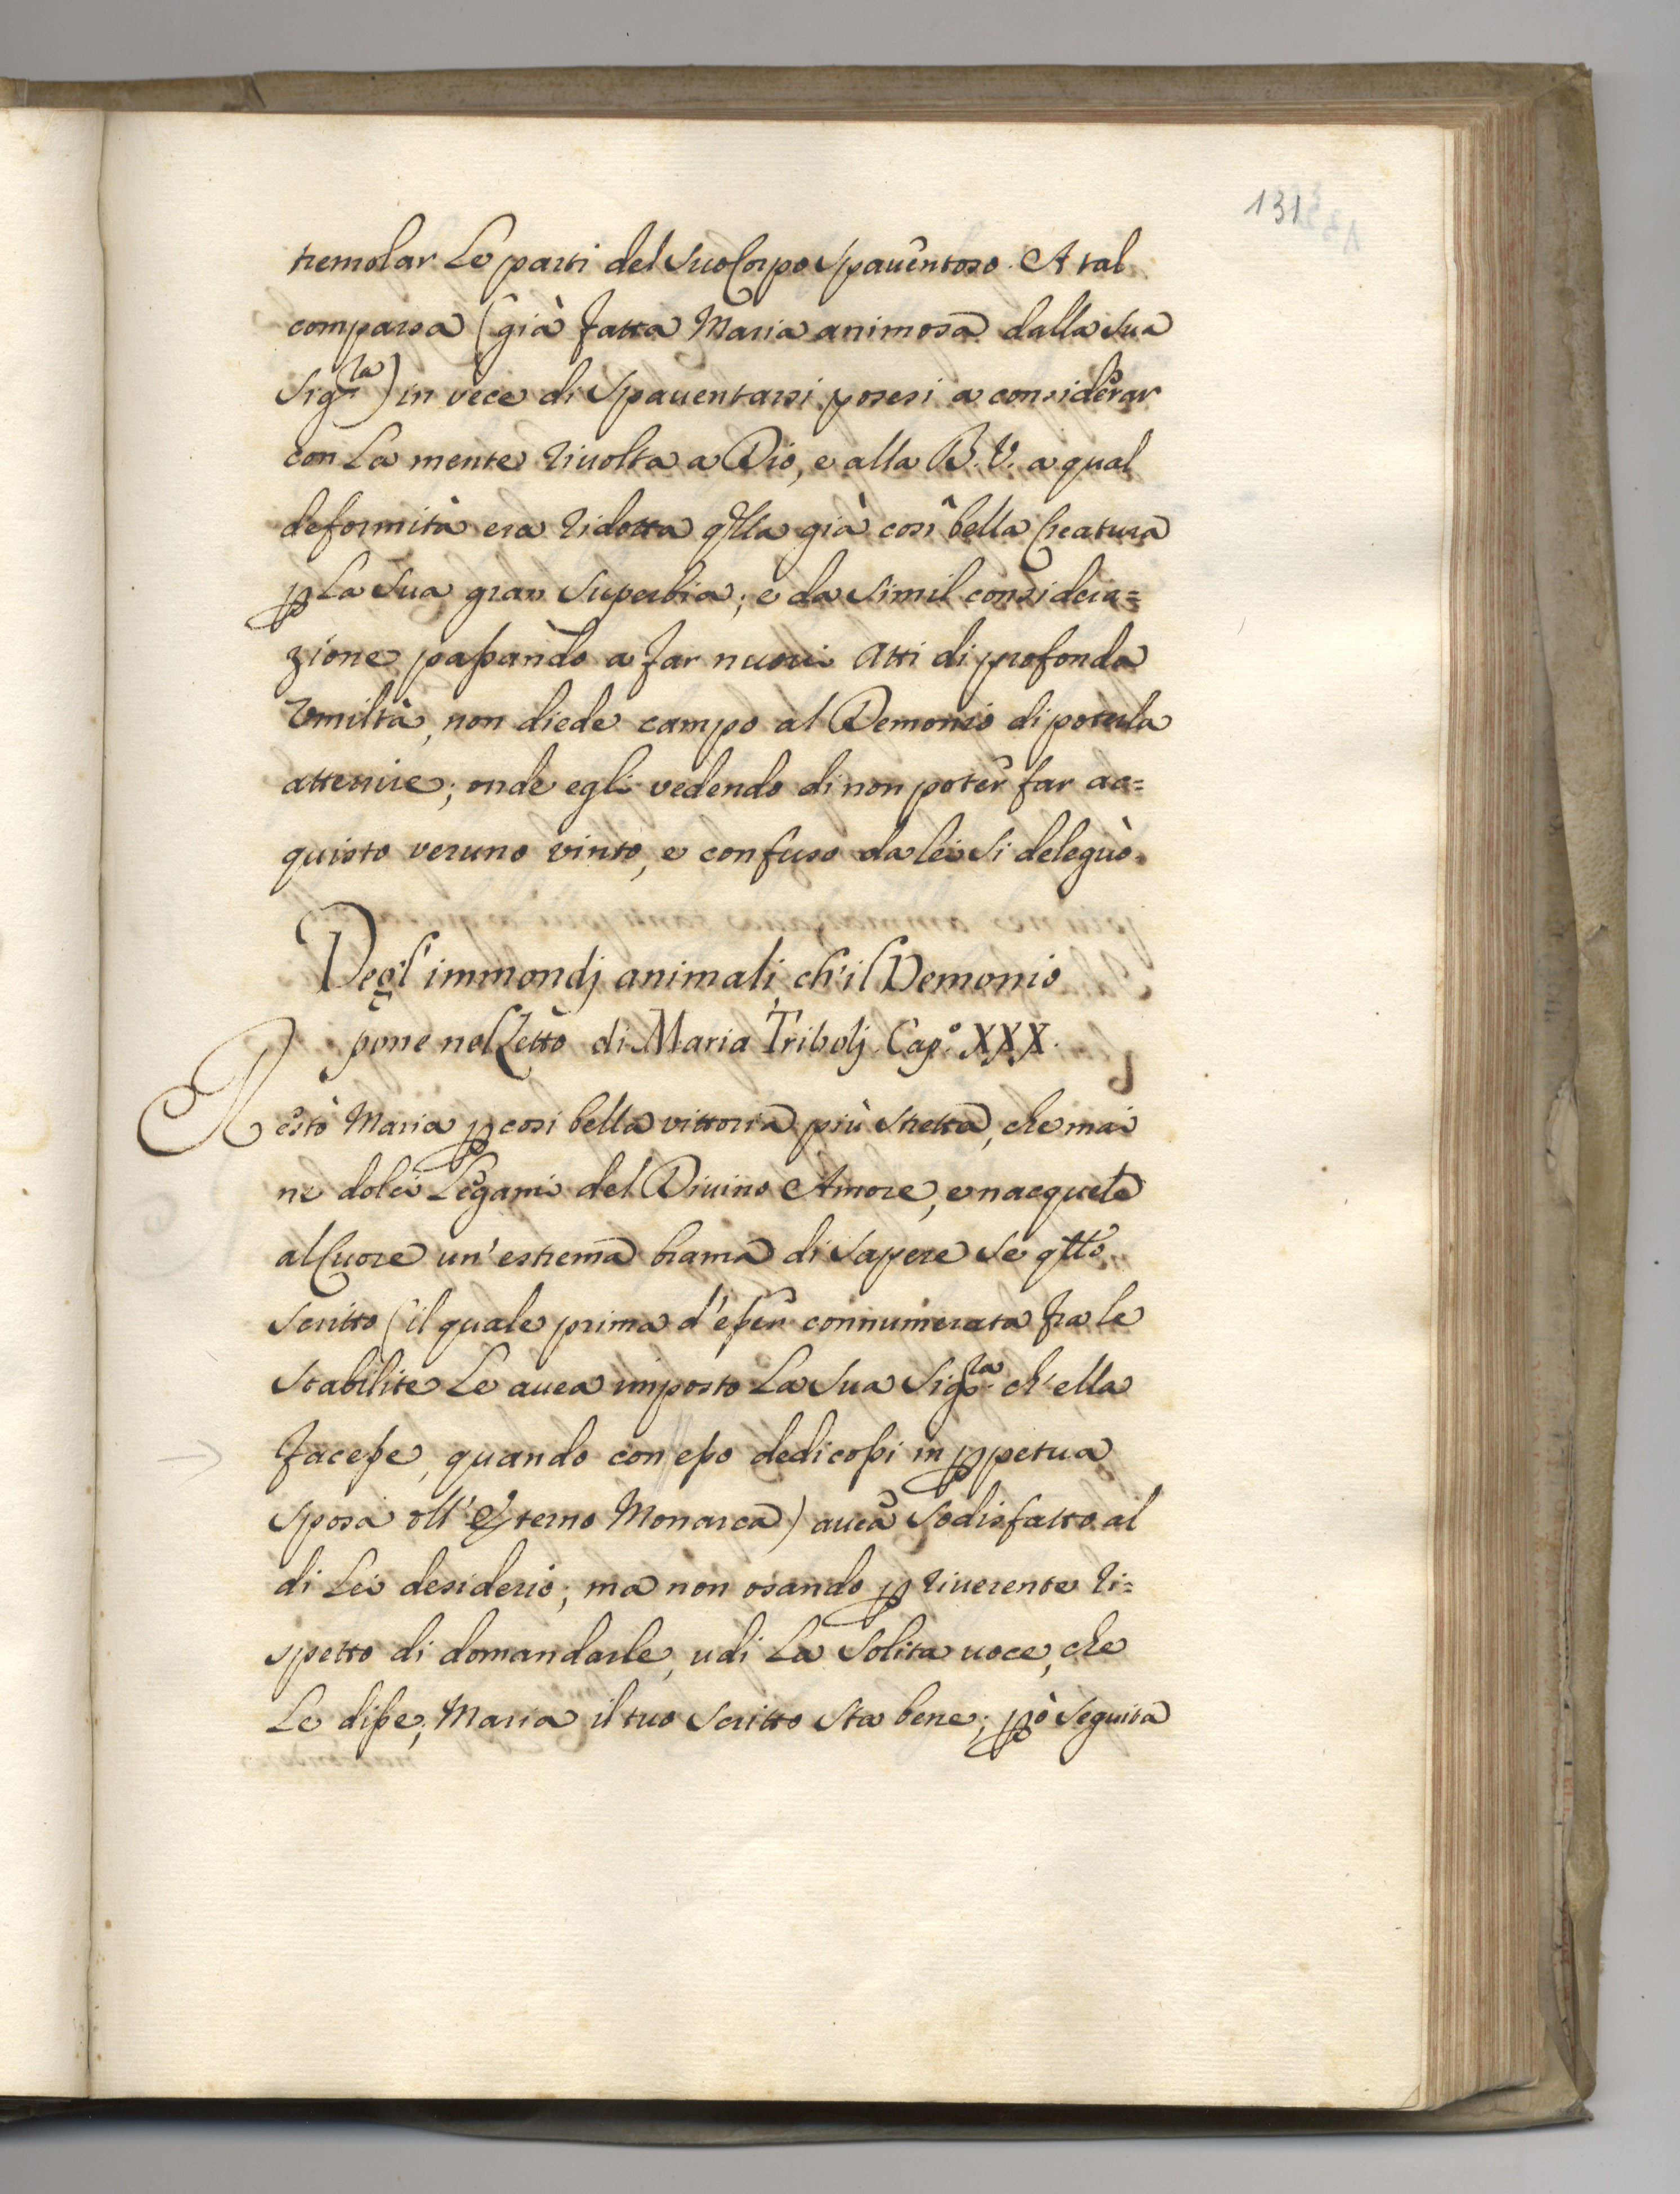 131
tremolar Le parti del Suo Corpo Spauentoso. A tal
comparsa (già fatta Maria animosa dalla Sua
Sig.ra) in vece di Spauentarsi posesi a considerar
con La mente riuolta a Dio, e alla B. V. a qual
deformità era ridotta qlla già così bella Creatura
p La Sua gran Superbia; e da Simil considera=
zione passando a far nuovi Atti di profonda
Vmiltà, non diede campo al Demonio di poterla
atterrire; onde egli vedendo di non poter far ac=
quisto veruno vinto, e confuso da lei Si deleguò.
Degl'immondj animali, ch'il Demonio
pone nel Letto di Maria Tribolj. Cap.º XXX.
Restò Maria p così bella vittoria più Stretta, che mai
ne dolci Legami del Diuino Amore, e nacquele
al Cuore un'estrema brama di Sapere Se qtto
Scritto (il quale prima d'esser connumerata fra le
Stabilite Le auea imposto La Sua Sig.ra ch'ella
facesse, quando con esso dedicossi in ppetua
Sposa all'Eterno Monarca) auea Sodisfatto al
di Lei desiderio; ma non osando p riuerente ri=
spetto di domandarle, udì La Solita uoce, che
Le disse; Maria il tuo Scritto Sta bene; pò Seguita